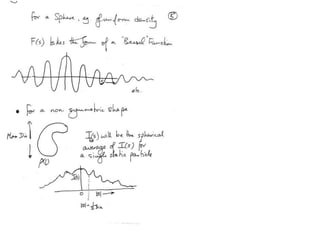 For a Sphere, eg of uniform density (5)
F(s) takes the form of a "Bessel" Function
etc.
• For a non symmetric shape
Max Dia
I(s) will be the spherical
average of I(s) for
a single static particle
ρ(r)
I(s)
0 |s| →